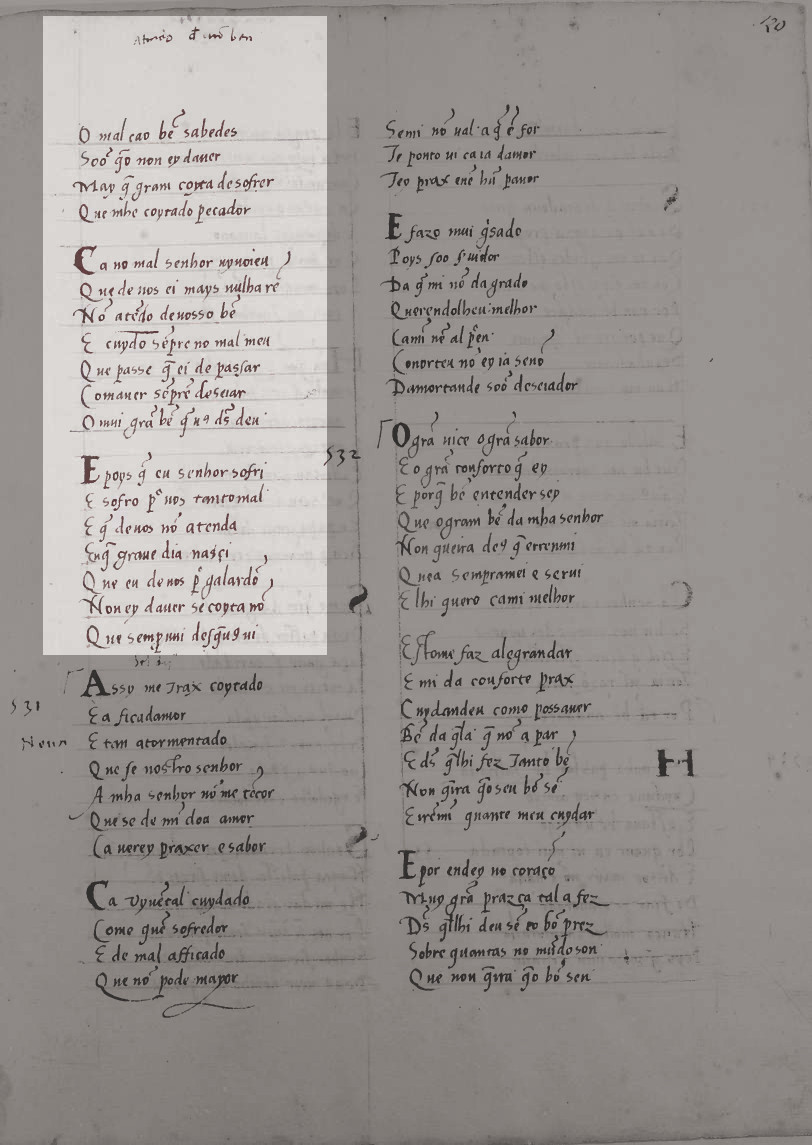 O mal çao bẽ sabedes
Soo q̃o non ey dauer
May q̃ gram coyta desofrer
Que mhe coytado pecador
Ca no mal senhor uyuoieu
Que de uos ei mays nulha rẽ
Nõ atẽdo deuosso bẽ
E cuydo sẽpre no mal meu
Que passe q̃ ei de passar
Comauer sẽpre deseiar
O mui grã bẽ q̃ uꝯ ds̃ deu
E poys q̃ eu senhor sofri
E sofro p̃ uos tantomal
E q̃ deuos nõ atenda
Euq̃ graue dia naçi
Que eu de uos p̃ galardõ
Non ey dauer se coyta nõ
Que sempr̃ uui desq̃ uꝯ ui
531
Assy me Trax coytado
E a ficadamor
E tan atormentado
Que se nostro senhor
A mha senhor nõ me tẽcor
Que se de mĩ doa amor
Ca uerey praxer e sabor
Ca uyuẽtal cuydado
Como quẽ sofredor
E de mal afficado
Que nõ pode mayor
50
Semi nõ ual a q̃ ẽ for
Te ponto ui ca ia damor
Tey prax enẽ hũ pauor
E fazo mui g̃sado
Poys soo s̃uidor
Da q̃ mi nõ da grado
Querendolheu melhor
Cami nẽ al p̃en
Conorteu nõ ey ia senõ
Damortande soo deseiador
532
O grã uice o grã sabor
E o grã conforto q̃ ey
E porq̃ bẽ entender sey
Que o gram bẽ da mha senhor
Non queira deꝯ q̃ errenmi
Quea sempramei e serui
E lhi quero cami melhor
Estome faz alegrandar
E mi da conforte prax
Cuydandeu como possauer
Bẽ da q̃la q̃ nõ a par
E ds̃ q̃lhi fez Tanto bẽ
Non q̃ira q̃oseu bõ sẽ
Eirẽmi quante meu cuydar
E por endey no coraço
Muy grã praz ca tal a fez
Ds̃ q̃lhi deu sẽ eo bõ prez
Sobre quantas no mũdo son
Que non q̃ira q̃o bõ sen